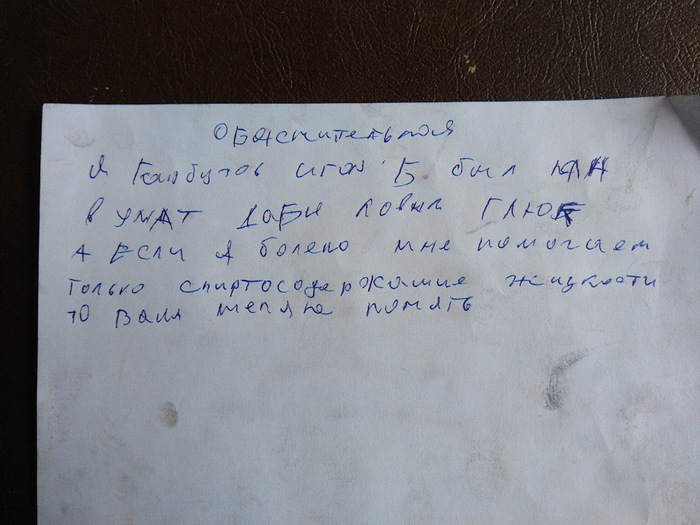 Обяснительная
Я Гамбутов Игов Б был пян
в умат даби ловил глюк
А Если я болею мне помогаем
только спиртосодержашие жидкости
то Вам меня не понять